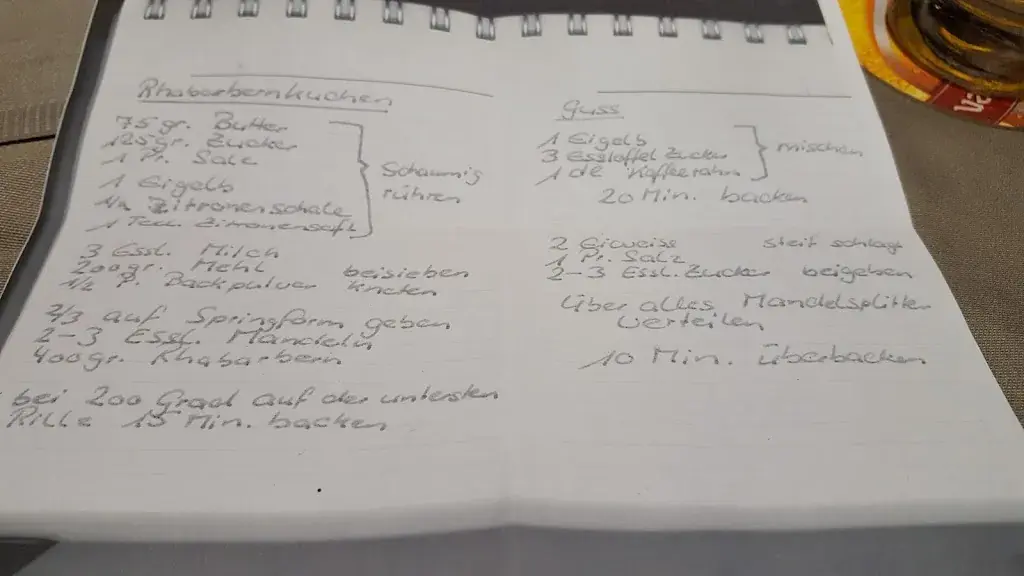 Rhabarbernkuchen
75 gr. Butter
125 gr. Zucker
1 Pr. Salz
1 Eigelb
1/2 Zitronenschale
1 Teel. Zitronensaft
Schaumig
rühren
3 Essl. Milch
200 gr. Mehl
1/2 P. Backpulver
beisieben
kneten
2/3 auf Springform geben
2-3 Essl. Mandeln
400 gr. Rhabarbern
bei 200 Grad auf der untersten
Rille 15 Min. backen
Guss
1 Eigelb
3 Esslöffel Zucker
1 de Kafferahm
mischen
20 Min. backen
2 Eiweiss steif schlagen
1 Pr. Salz
2-3 Essl. Zucker beigeben
über alles Mandelsplitter
verteilen
10 Min. überbacken